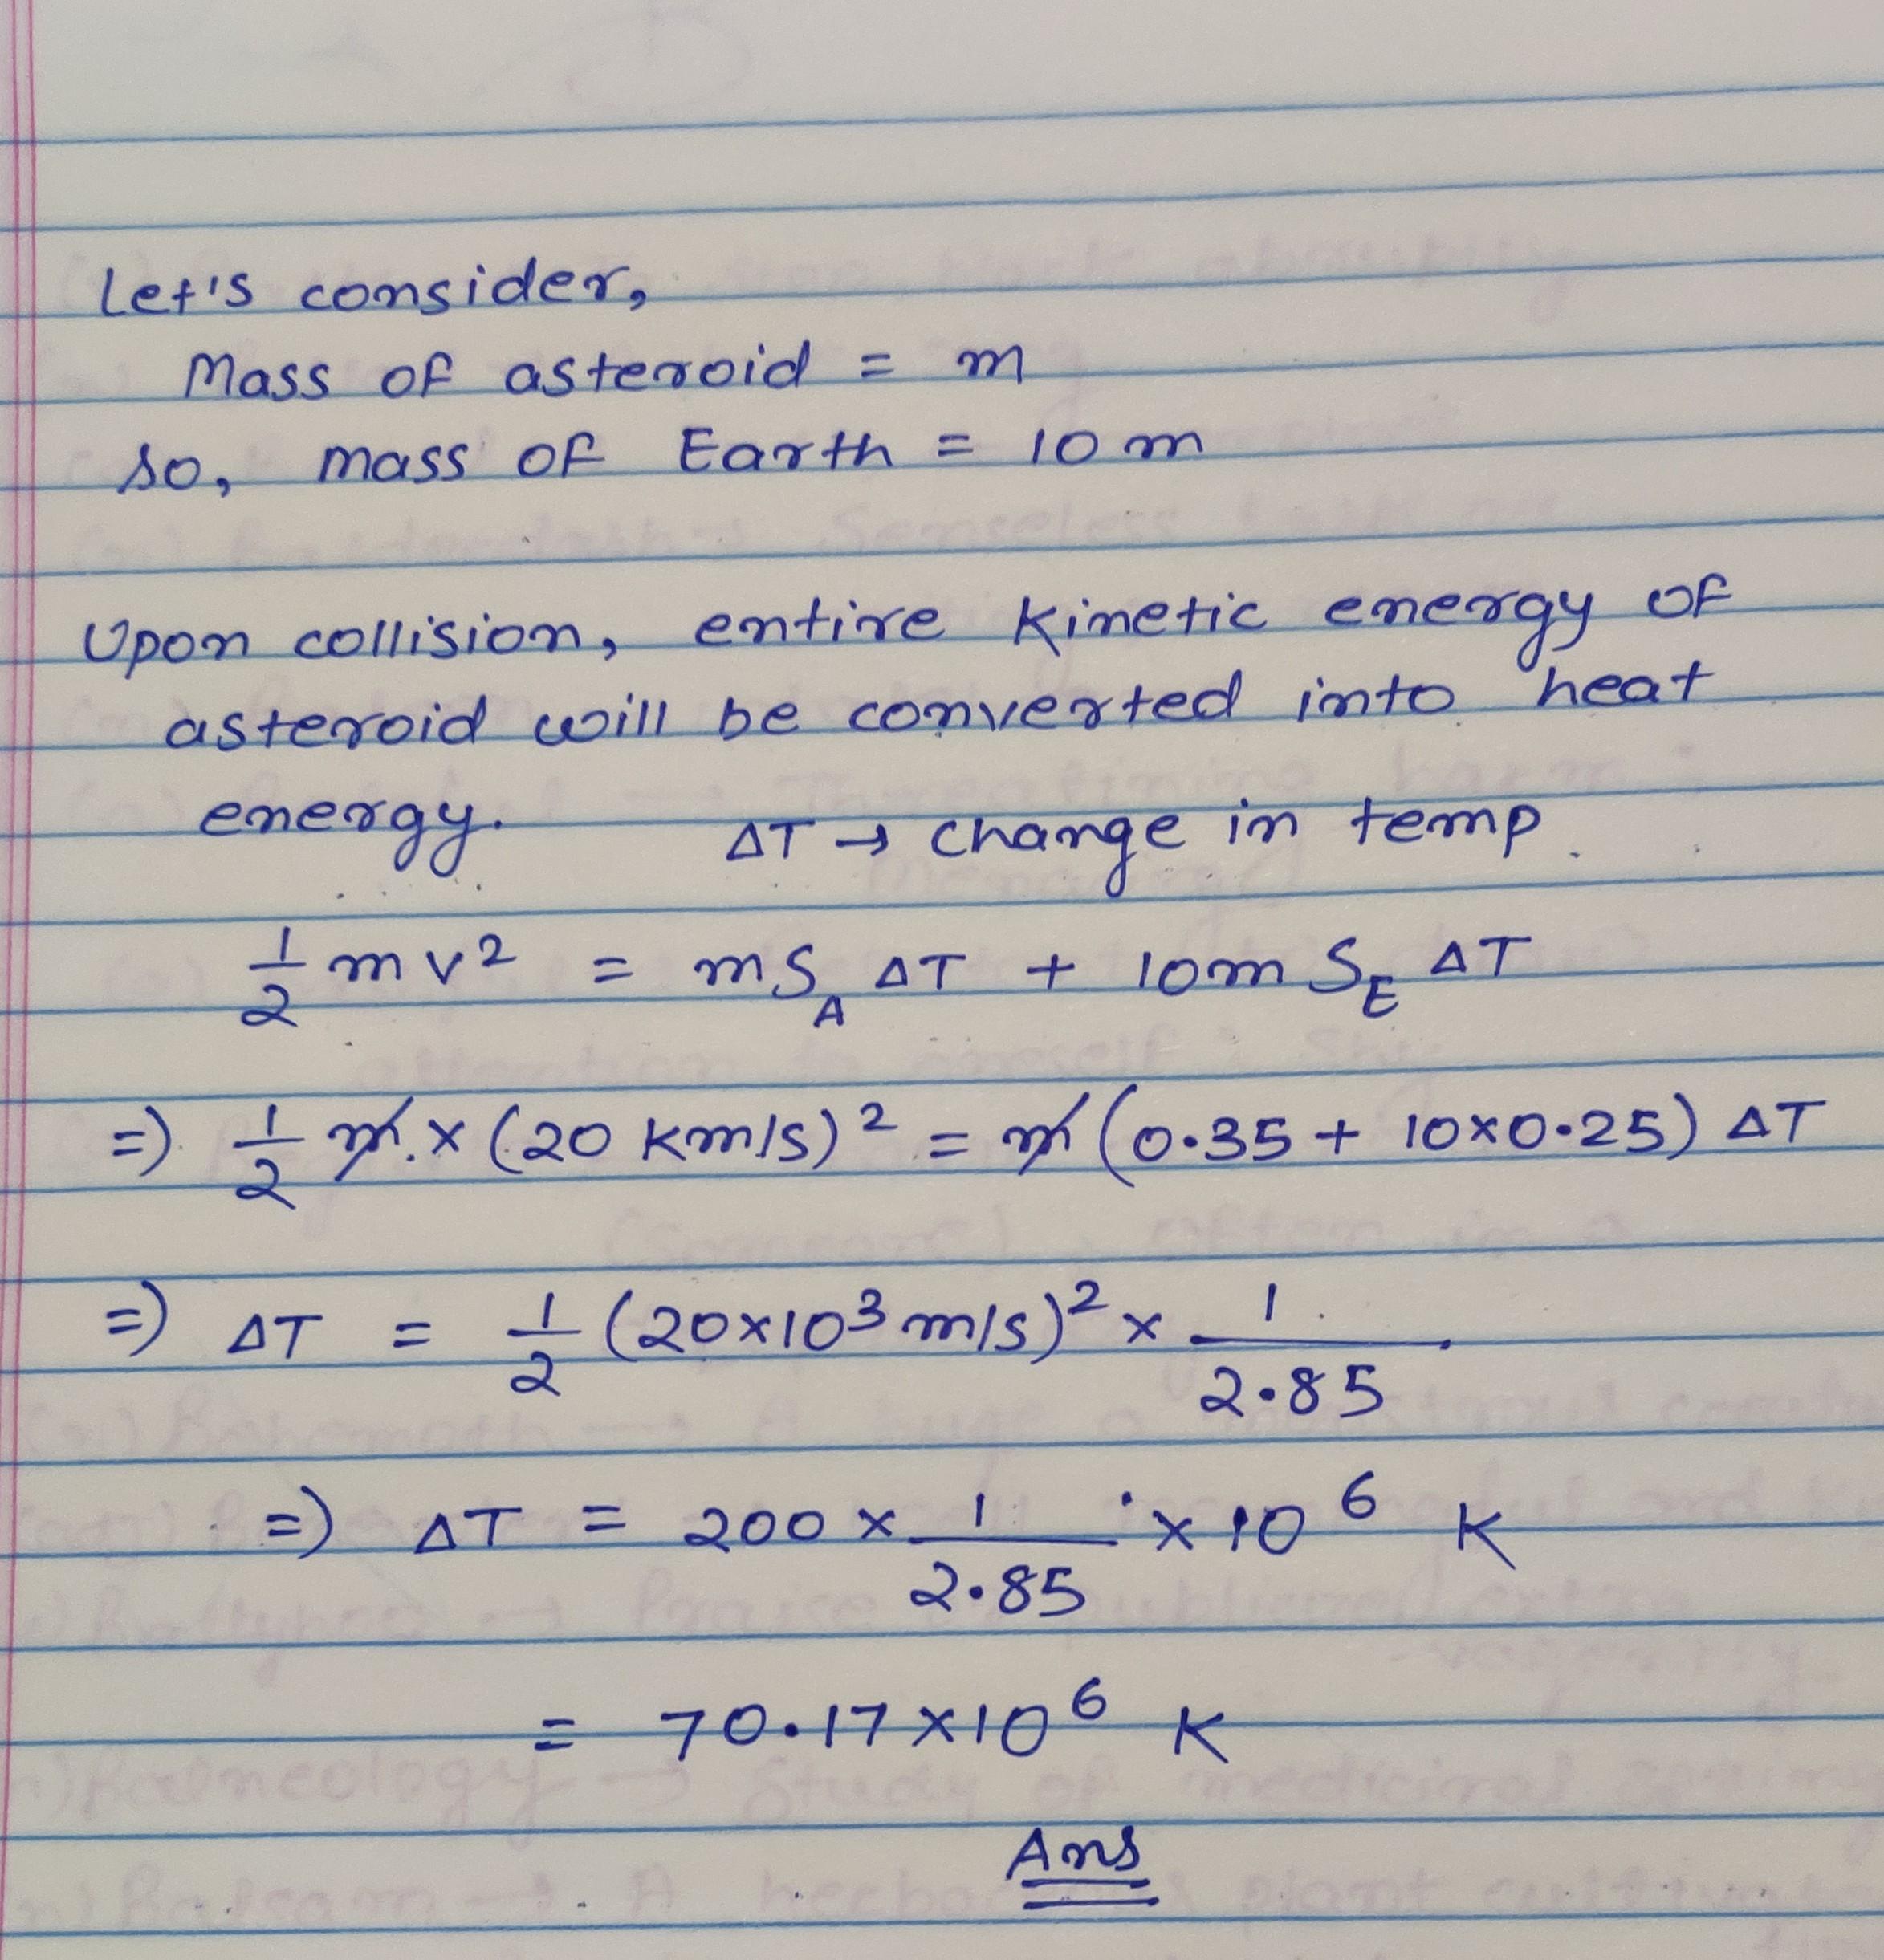 Let's consider,
Mass of asteroid = m
so, mass of Earth = 10 m
Upon collision, entire kinetic energy of
asteroid will be converted into heat
energy. ΔT → change in temp.
1/2 m v² = m S_A ΔT + 10m S_E ΔT
⇒ 1/2 m × (20 km/s)² = m (0.35 + 10×0.25) ΔT
⇒ ΔT = 1/2 (20×10³ m/s)² × 1/2.85
⇒ ΔT = 200 × 1/2.85 × 10⁶ K
= 70.17 × 10⁶ K
Ans